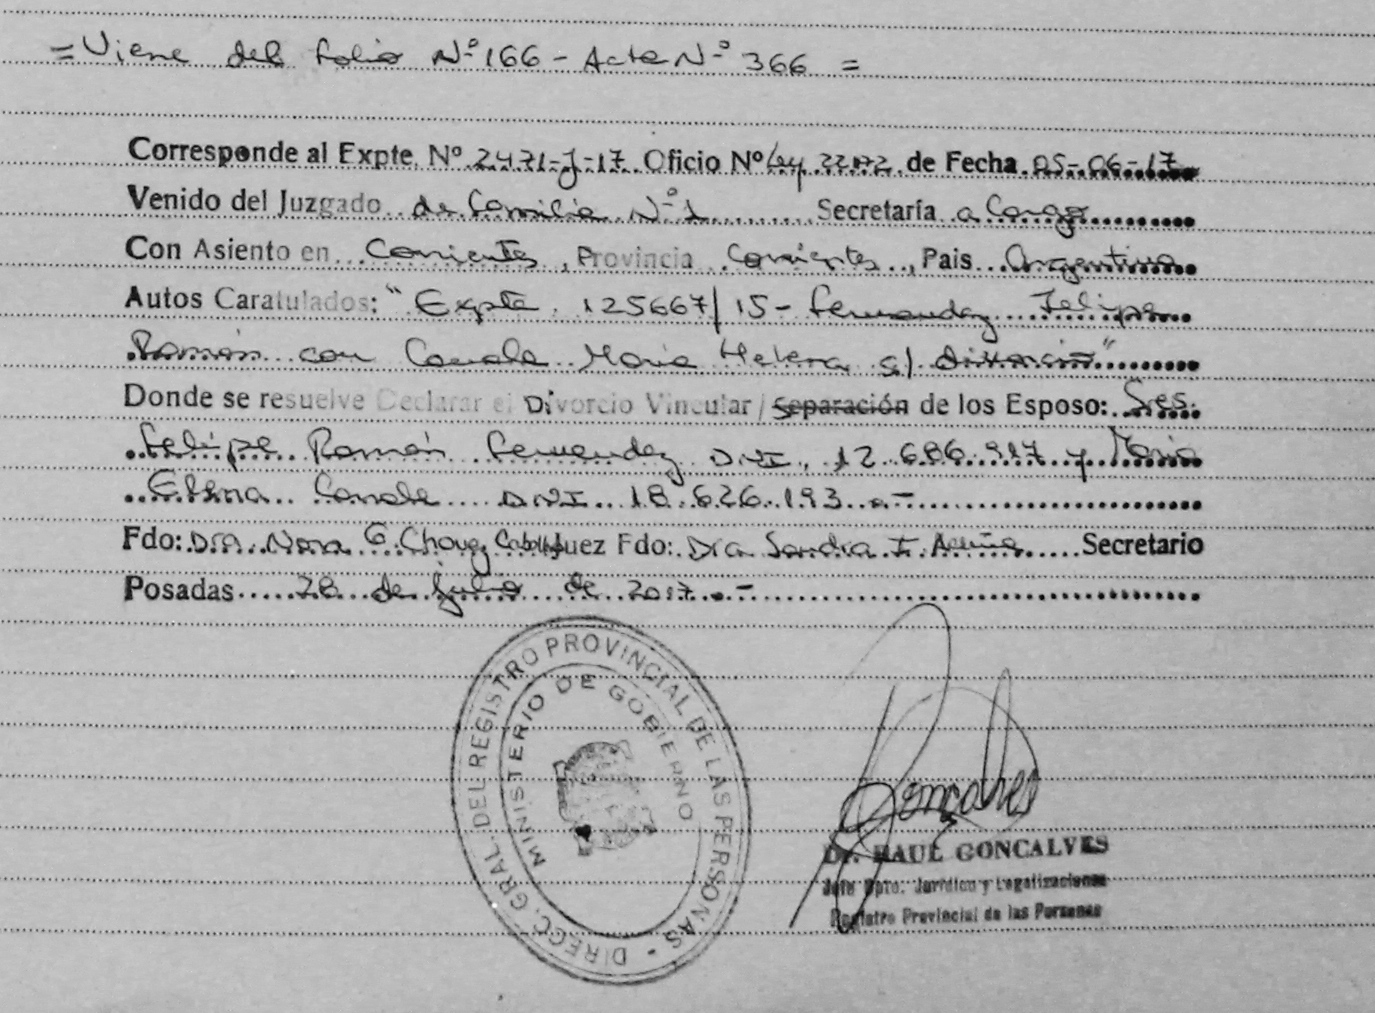 = Viene del folio Nº 166 - Acta Nº 366 =
Corresponde al Expte. Nº 2471-J-17 Oficio Nº Ley 22172 de Fecha 05-06-17
Venido del Juzgado de Familia Nº 1 Secretaría a Cargo
Con Asiento en Corrientes, Provincia Corrientes, Pais Argentina
Autos Caratulados: "Expte. 125667/15 - Fernandez Felipe
Ramón con Canale Maria Helena s/ divorcio"
Donde se resuelve Declarar el Divorcio Vincular / Separación de los Esposo: Sres.
Felipe Ramón Fernandez DNI. 12.686.917 y Maria
Elena Canale DNI 18.626.193 .-
Fdo: Dra. Nora G. Chavez Juez Fdo: Dra Sandra F. Acuña Secretario
Posadas 28 de julio de 2017.-
DIRECC. GRAL. DEL REGISTRO PROVINCIAL DE LAS PERSONAS
MINISTERIO DE GOBIERNO
Goncalves
Dr. RAUL GONCALVES
Jefe Dpto. Jurídico y Legalizaciones
Registro Provincial de las Personas